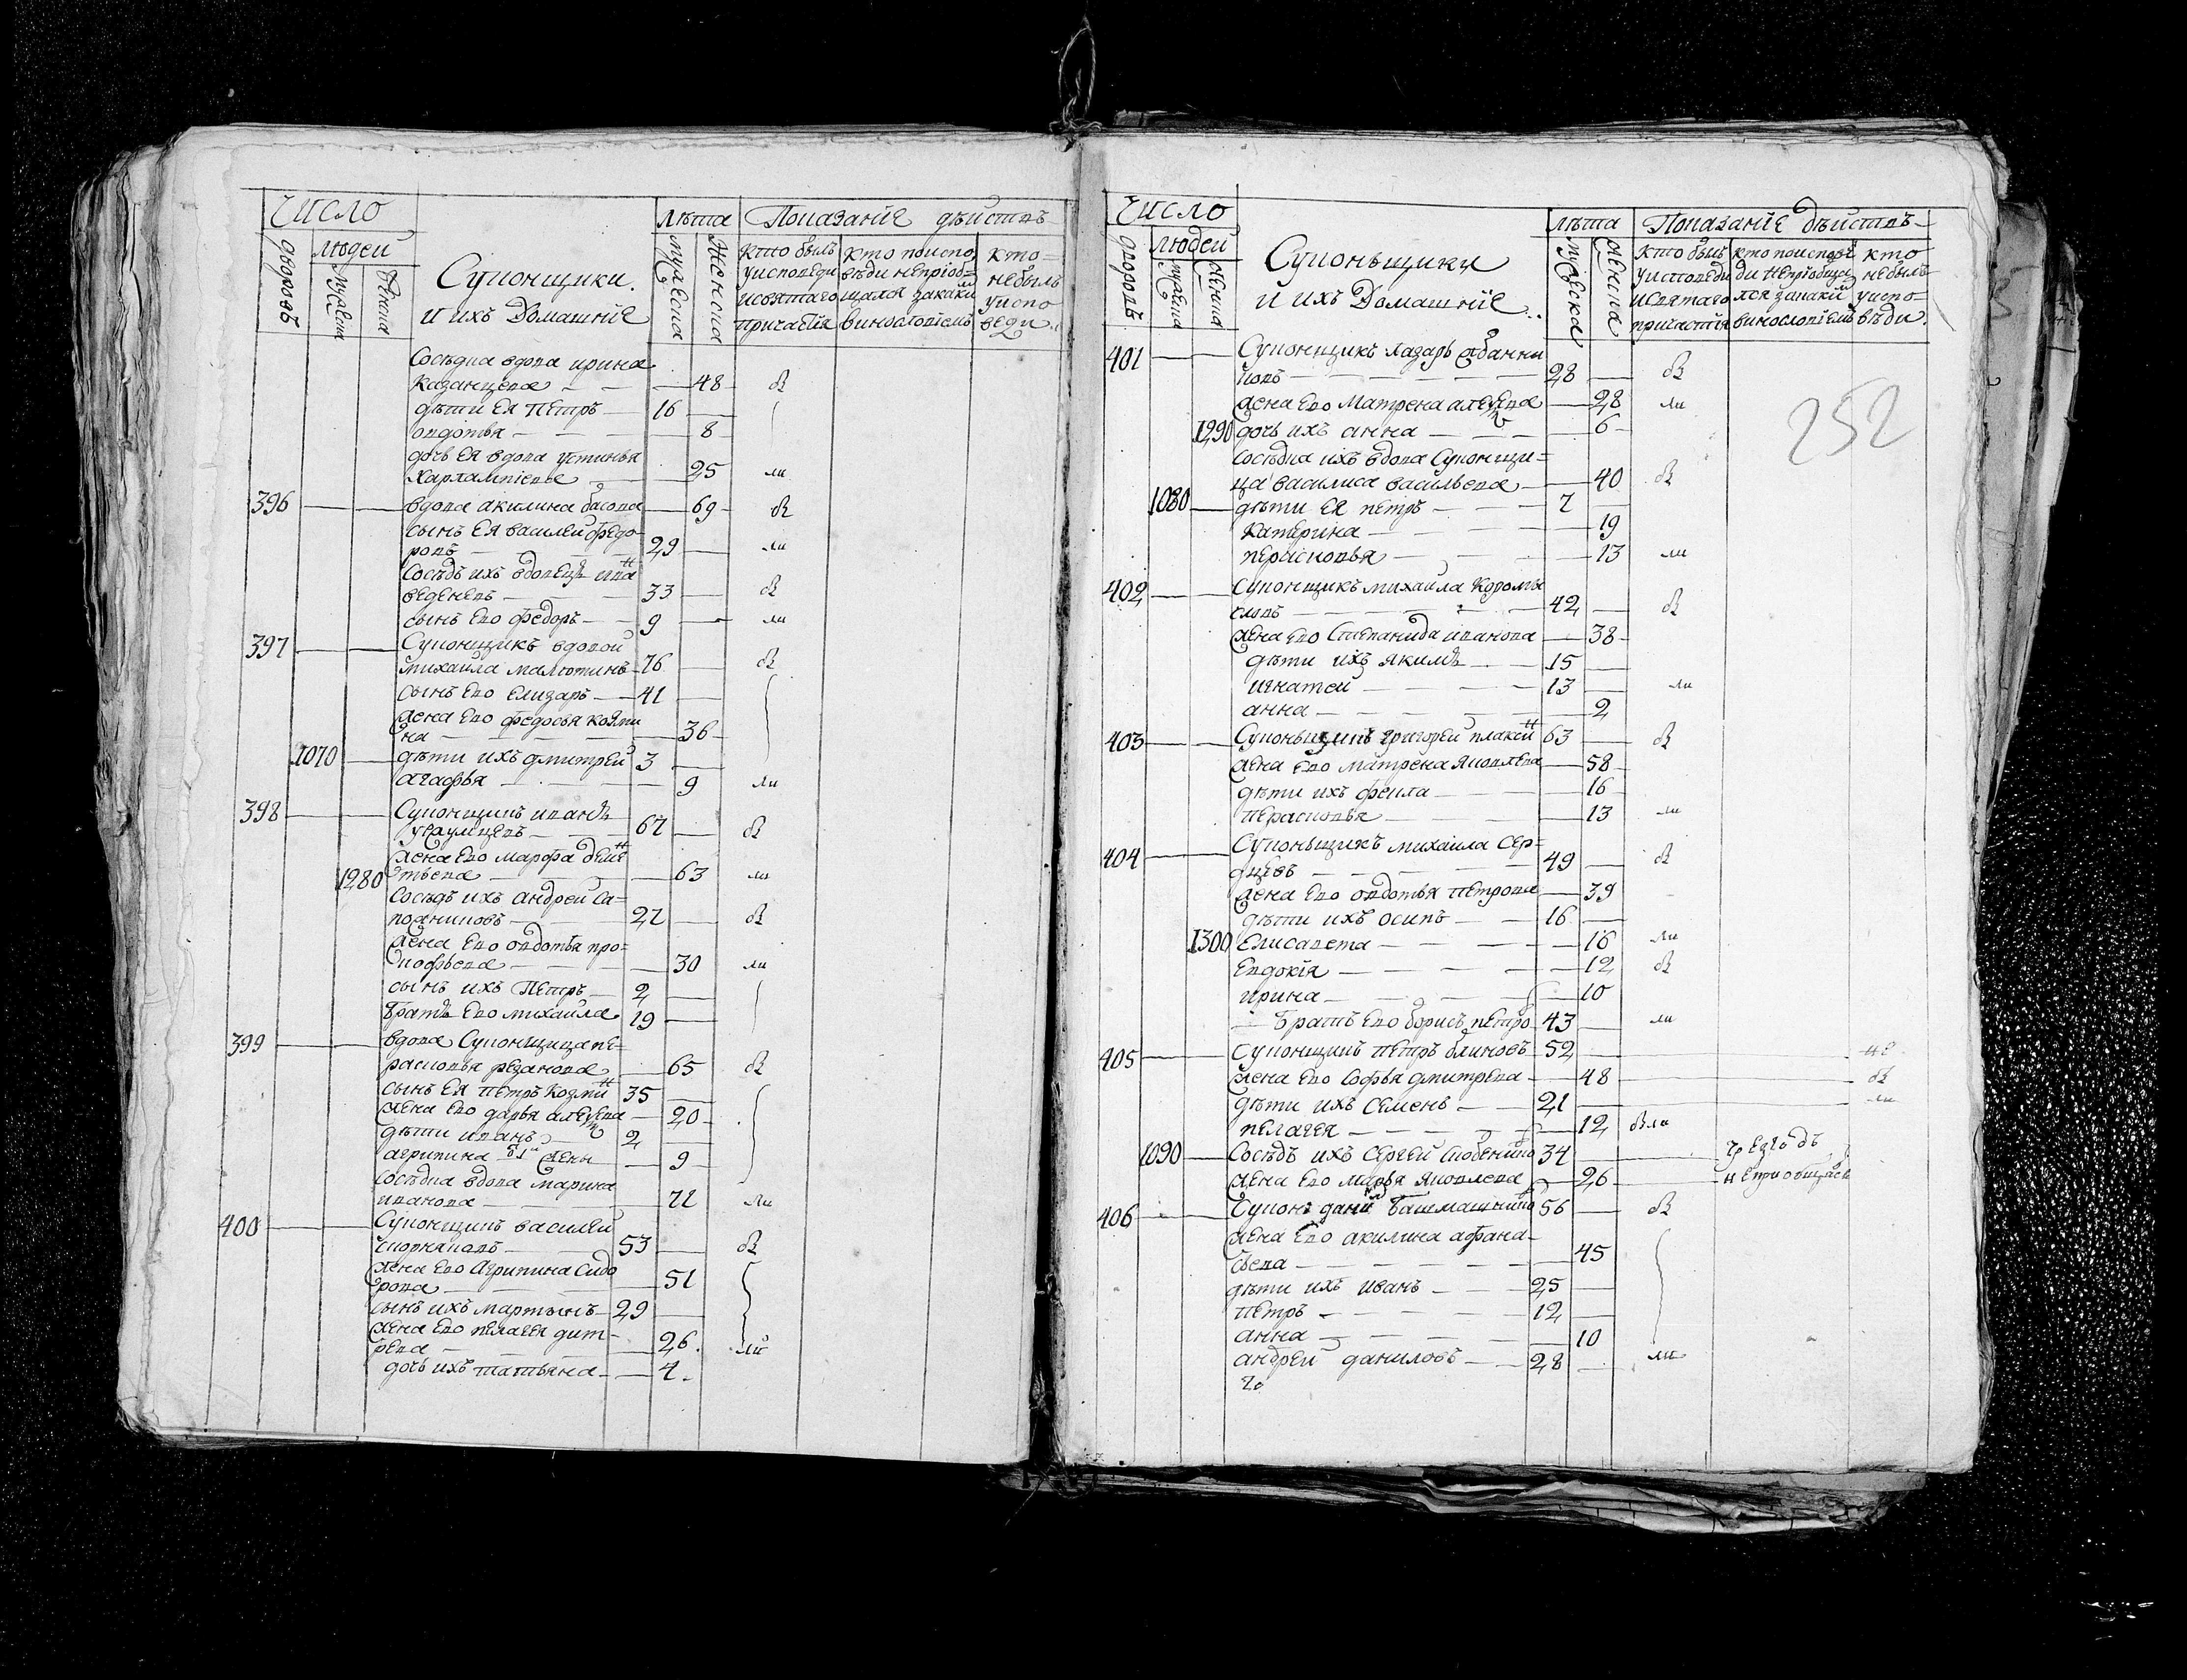 Число
Людей
Дворовъ
Мужеска
Женска
Супонщики.
и ихъ Домашние
Лѣта
Мужеска
Женска
Показание дѣиствъ
кто былъ
уисповеди
исвятаго
причастія
кто поиспо
вѣди непріоб-
щался закаки
винословіемъ
кто=
небылъ
уиспо
веди..
Сосѣдка вдова ирина
казанцева — — — 48 — ві
дѣти ея петръ — 16 —
овдотья — — — 8 —
дочь ея вдова устинья
Харлампіева — 25 ли
396 — — вдова акилина басова — 69 — ві
сынъ ея василей федо
ровъ — 29 — ли
Сосѣдъ ихъ вдовецъ ива
веденевъ — 33 — ві
сынъ его федоръ — — 9 — ли
397 — — Супонщикъ вдовой
михаила малютинъ — 76 — ві
сынъ его елизаръ — 41 —
жена его федосья козми
на — — 36 —
1070 — дѣти ихъ дмитрей 3 —
агафья — — — 9 ли
398 — — Супонщикъ иванъ
— — 67 — ві
жена его марфа деме
1280 тьева — — 63 ли
Сосѣдъ ихъ андрей са-
пожниковъ — 27 — ві
жена его овдотья про=
кофьева — — 30 ли
сынъ ихъ Петръ — 2 —
братъ его михаила 19 —
399 — — вдова Супонщица пе-
расковья резанова — 65 ві
сынъ ея петръ козми 35 —
жена его дарья алексева — 20 —
дѣти иванъ — 2 —
агрипина жены — 9 —
сосѣдка вдова марина
иванова — — 72 ли
400 — — Супонщикъ василей
скорняковъ — 53 — ві
жена его Агрипина сидо
рова — — 51
сынъ ихъ мартынъ — 29 —
жена его пелагея дит-
рева — — 26. ли
дочь ихъ татьяна — — 4 -
Число
Людей
дворовъ
мужеска
женска
Супоньщики
и ихъ Домашніе..
Лѣта
мужеска
женска
Показаніе дѣиствъ
кто былъ
уисповеди
исвятаго
причастія
кто поисповѣ
ди непріобща
лся закаки
винословіемъ
кто
небылъ
уиспо-
вѣди.
252
401 — — Супонщикъ лазарь абанки
новъ — — — 28 — ві
жена его Матрена алексева — 28 ли
1290 дочь ихъ анна — — — 6 -
сосѣдка ихъ вдова Супонщи=
ца василиса васильева — — 40 ві
1080 — дѣти ея петръ — — 7 —
катерина — — — 19
перасковья — — — 13 ли
402 — — Супонщикъ михаила коромы
словъ — — 42 — ві
жена его степанида иванова — 38 -
дѣти ихъ якимъ — 15 —
игнатеи — — 13 — ли
анна — — — 2
403 — — Супоньщикъ григорей плакси 63 — ві
жена его матрена яковлева — 58 -
дѣти ихъ фекла — — 16 -
перасковья — — 13 ли
404 — — Супоньщикъ михаила сер-
дцевъ — — 49 — ві
жена его овдотья петрова — 39 -
дѣти ихъ осипъ — — 16 —
1300 елисавета — — — 16 ли
евдокія — — — 12 ві
ирина — — — 10
братъ его борисъ петро 43 — ли
405 — — Супонщикъ петръ блиновъ — 52 — не
жена его софья дмитрева — 48 — ві
дѣти ихъ семенъ — — 21 — ли
пелагея — — — 12 віли
1090 — Сосѣдъ ихъ сергей 34 —
жена его марья яковлева — 26 —
406 — — Супонъ дани башмашнико 56 — ві
жена его акилина афана-
сьева — — — 45
дѣти ихъ иванъ — — 25 —
петръ — — — 12 —
анна — — — 10
андрей даниловъ — — 28 — ли